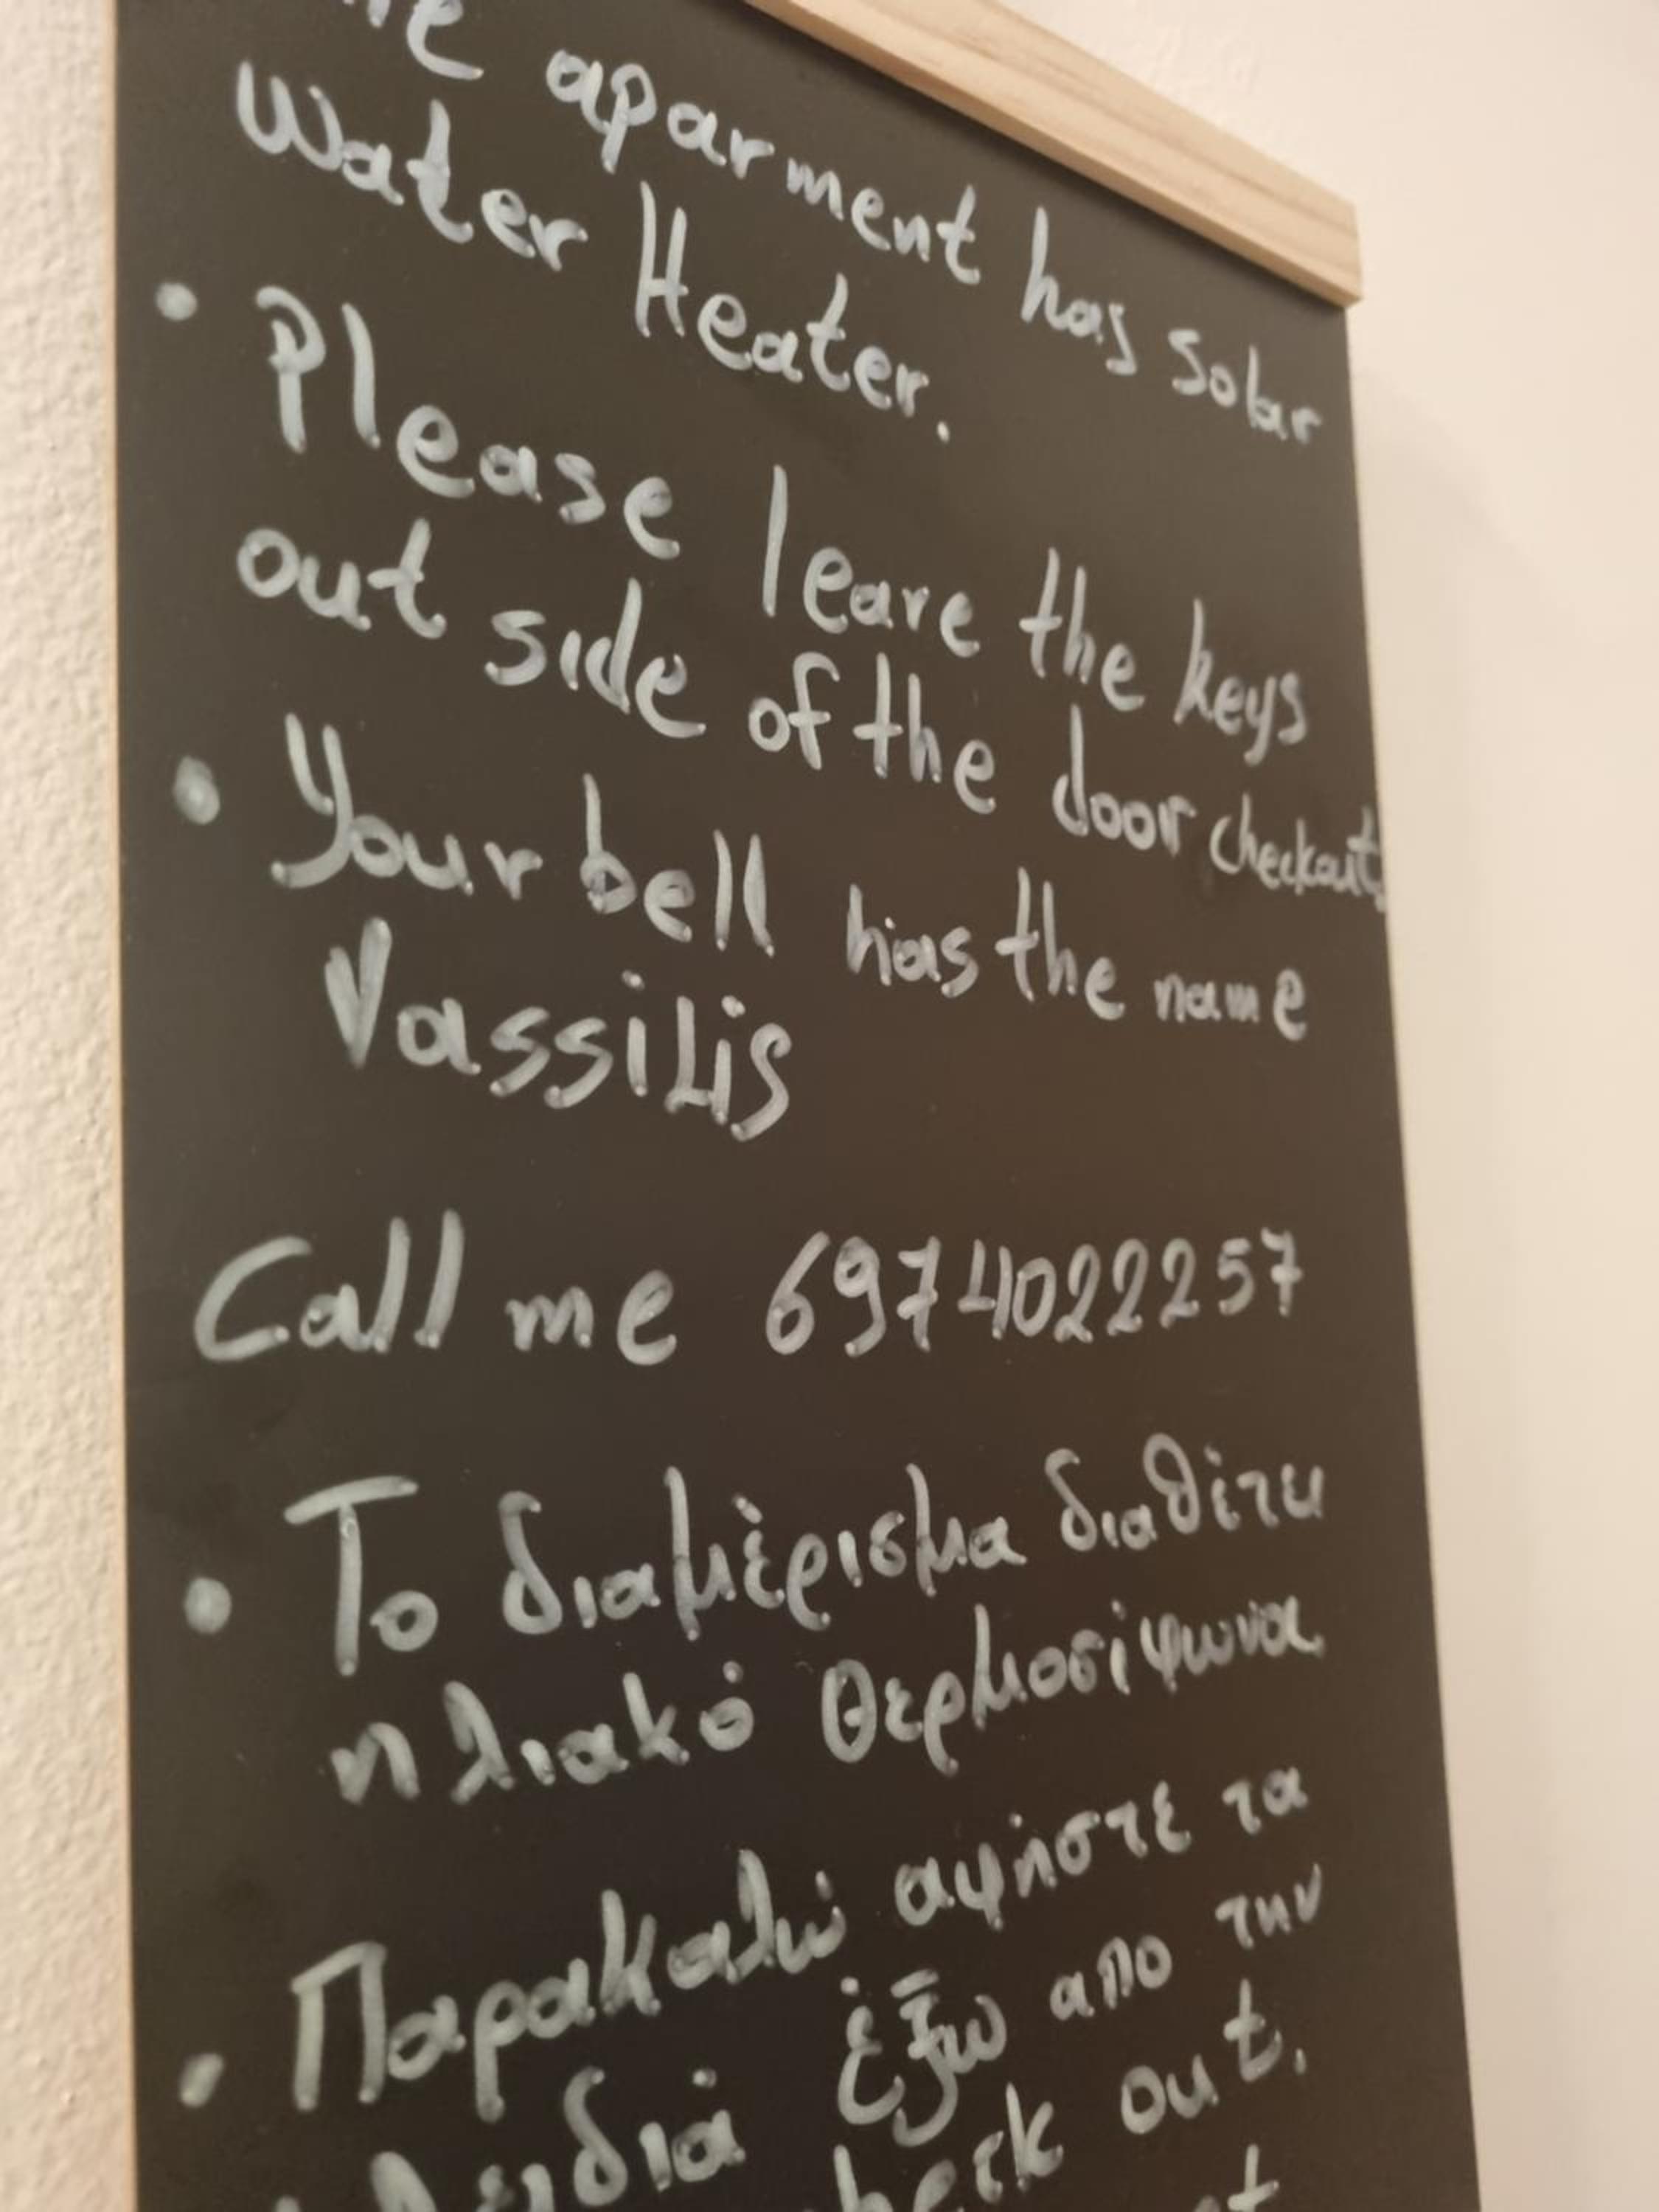 aparment has solar
Water Heater.
• Please leave the keys
out side of the door checkout.
• Your bell has the name
Vassilis
Call me 6974022257
• Το διαμέρισμα διαθέτει
ηλιακό θερμοσίφωνα
• Παρακαλώ αφήστε τα
έξω απο την
out.